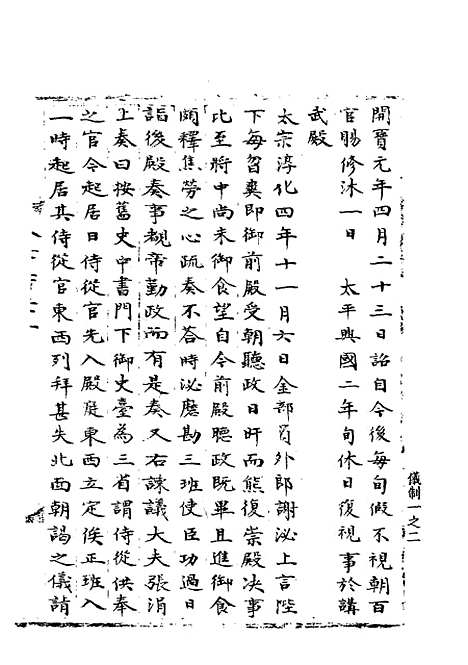 開寶元年四月二十三日詔自今後每旬假不視朝百
官賜修沐一日　太平興國二年旬休日復視事於講
武殿
太宗淳化四年十一月六日金部員外郎謝泌上言陛
下每旦夾即御前殿受朝聽政日旰而態復崇殿决事
比至將中尚未御食望自今前殿聽政既畢且進御食
頗釋焦勞之心疏奏不答時泌應勘三班使臣功過日
詣後殿奏事覩帝勤政而有是奏又右諫議大夫張洎
上奏曰按舊史中書門下御史臺為三省謂侍從供奉
之官今起居日侍從官先入殿庭東西立定俟正班入
一時起居其侍從官東西列拜甚失北面朝謁之儀請
儀制一之二